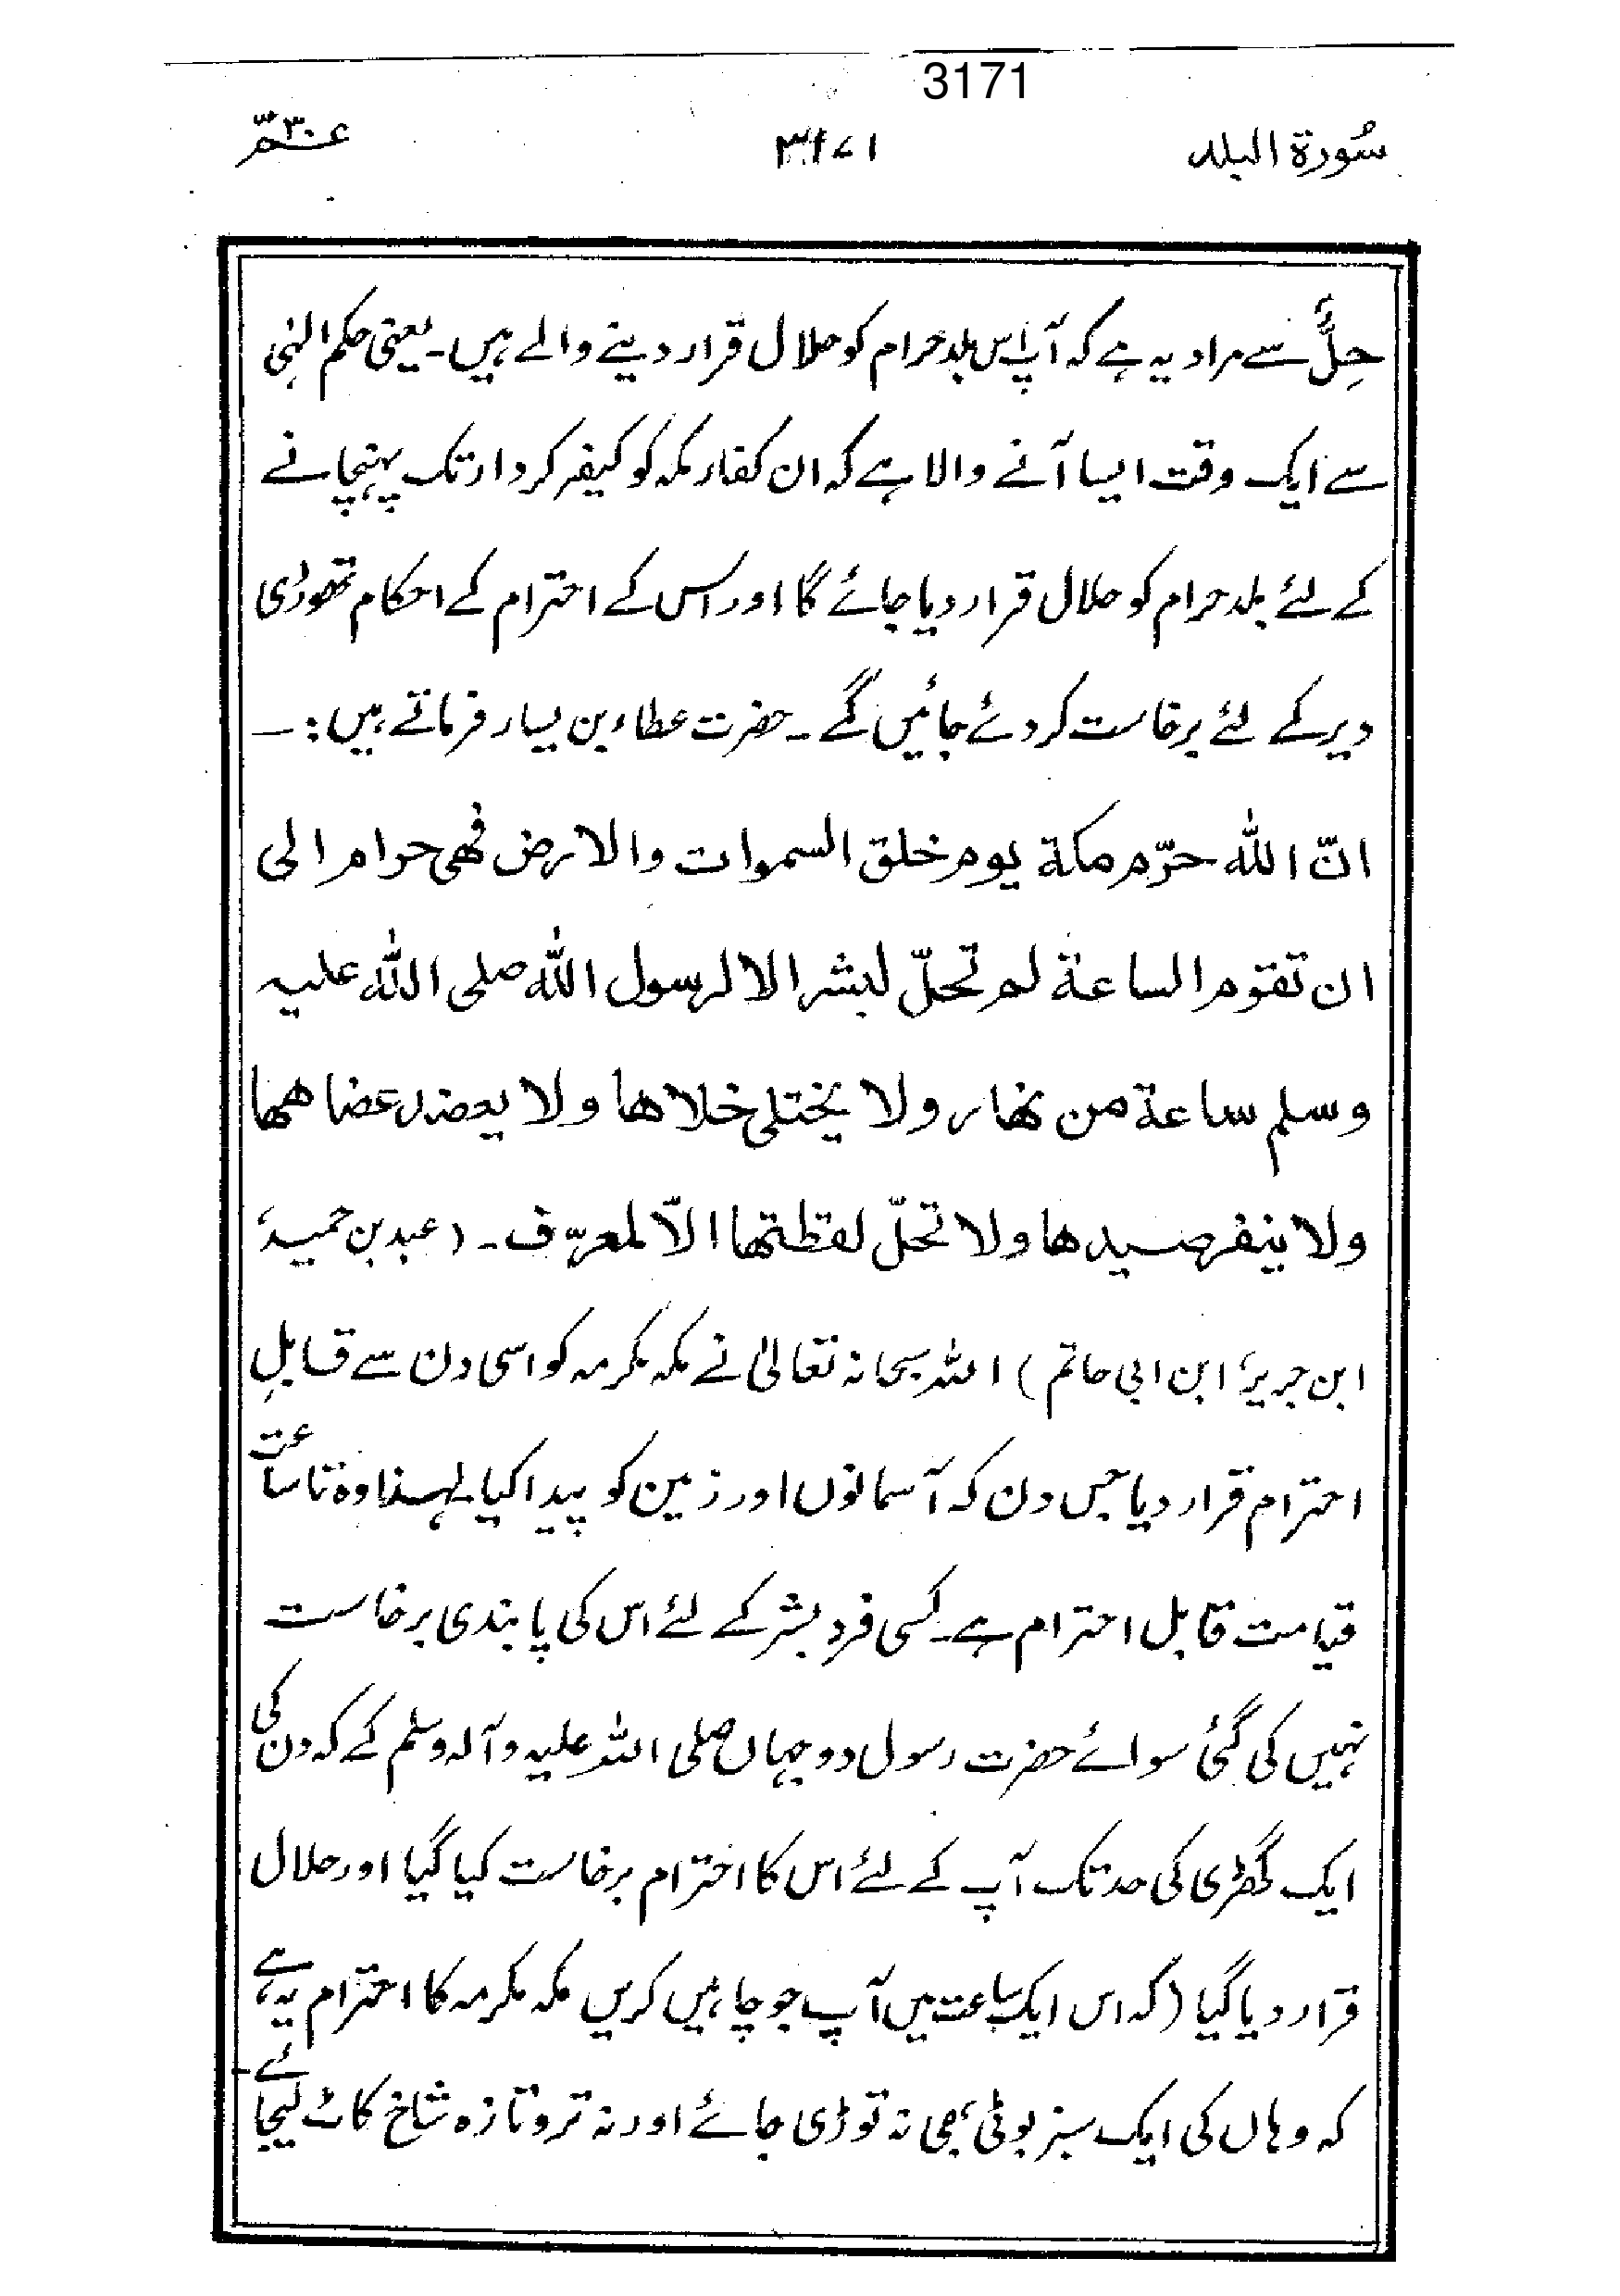 3171
سُورة البلد ۳۱۷۱ عـمّ ۳۰
حِلٌّ سے مراد یہ ہے کہ آپ اس بلد حرام کو حلال قرار دینے والے ہیں۔ یعنی حکم الٰہی
سے ایک وقت ایسا آنے والا ہے کہ ان کفار مکہ کو کیفر کردار تک پہنچانے
کے لئے بلد حرام کو حلال قرار دیا جائے گا اور اس کے احترام کے احکام تھوڑی
دیر کے لئے برخاست کر دئے جائیں گے۔ حضرت عطاء بن یسار فرماتے ہیں :۔
انّ اللّٰه حرّم مكة يوم خلق السموات والارض فهى حرام الى
ان تقوم الساعة لم تحلّ لبشر الا لرسول اللّٰه صلى اللّٰه عليه
وسلم ساعة من نهار ولا يختلى خلاها ولا يعضد عضاهها
ولا ينفر صيدها ولا تحلّ لقطتها الّا لمعرّف۔ (عبد بن حمید،
ابن جریر، ابن ابی حاتم) اللہ سبحانہ تعالیٰ نے مکہ مکرمہ کو اسی دن سے قابلِ
احترام قرار دیا جس دن کہ آسمانوں اور زمین کو پیدا کیا۔ لہٰذا وہ تا ساعت
قیامت قابل احترام ہے۔ کسی فرد بشر کے لئے اس کی پابندی برخاست
نہیں کی گئی سوائے حضرت رسول دو جہاں صلی اللہ علیہ وآلہ وسلم کے کہ دن کی
ایک گھڑی کی حد تک آپ کے لئے اس کا احترام برخاست کیا گیا اور حلال
قرار دیا گیا (کہ اس ایک ساعت میں آپ جو چاہیں کریں مکہ مکرمہ کا احترام یہ ہے
کہ وہاں کی ایک سبز بوٹی بھی نہ توڑی جائے اور نہ تر و تازہ شاخ کاٹ لیجائے۔